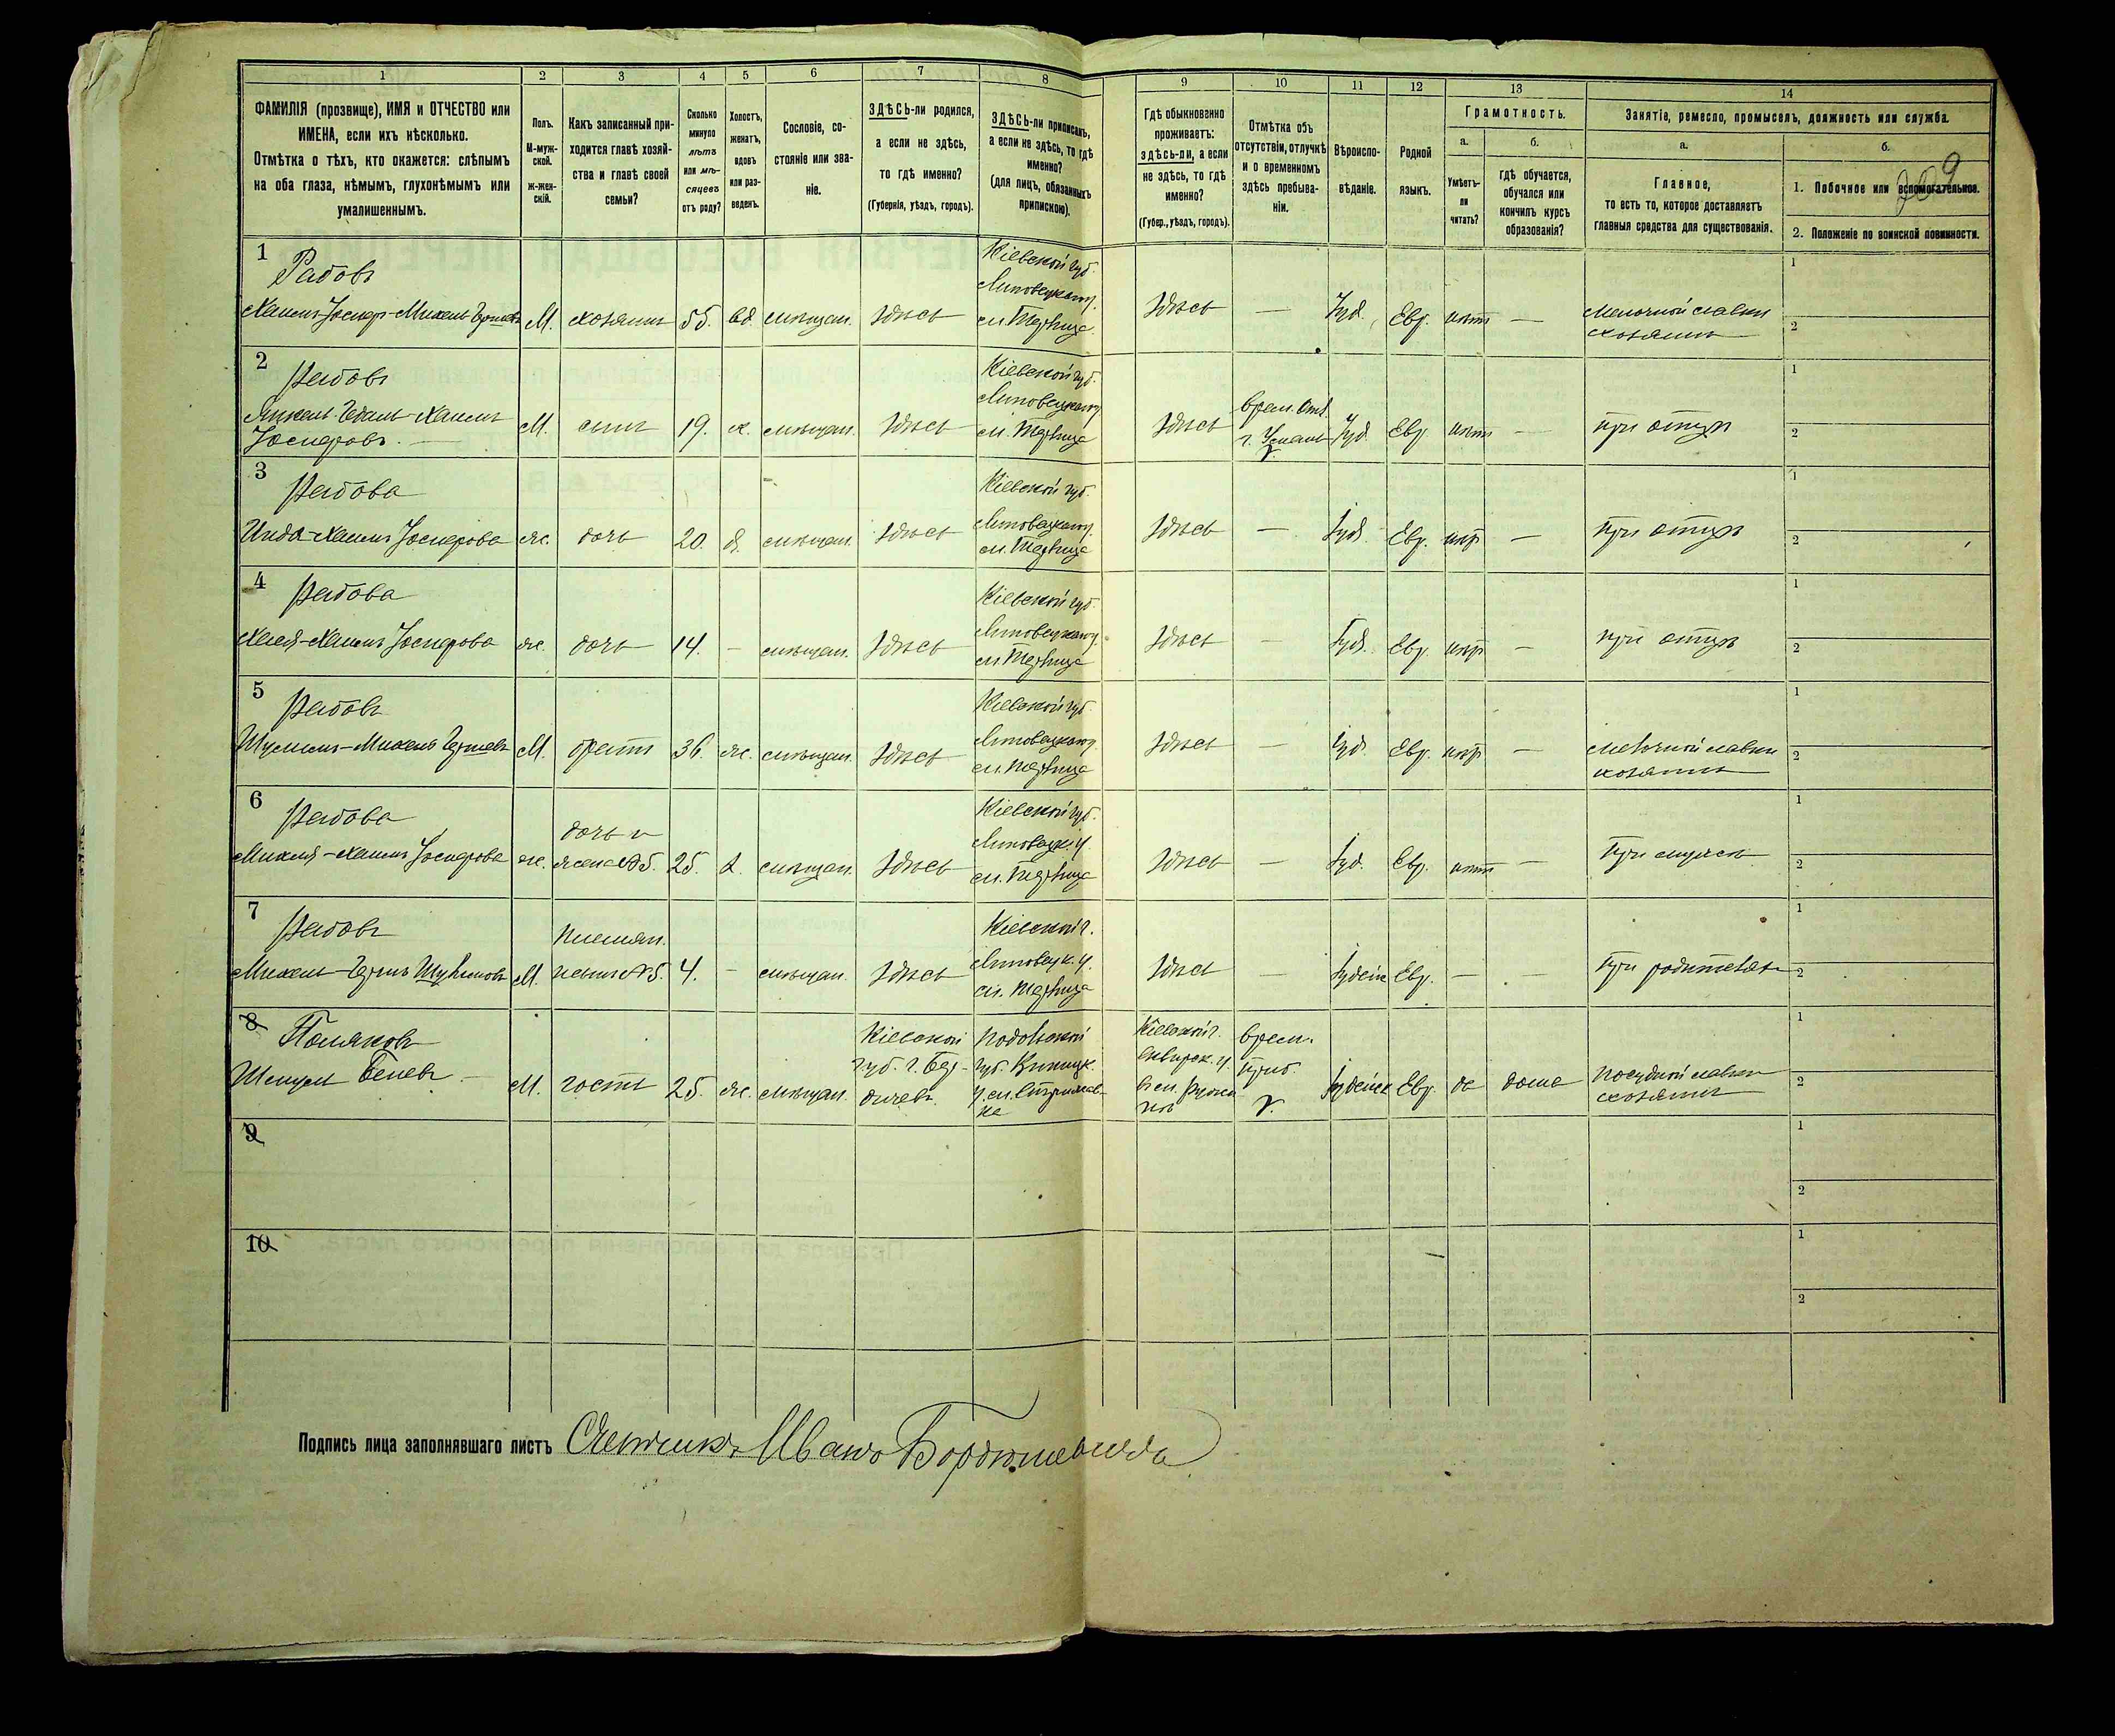 1 2 3 4 5 6 7 8 9 10 11 12 13 14
ФАМИЛІЯ (прозвище), ИМЯ и ОТЧЕСТВО или
ИМЕНА, если ихъ нѣсколько.
Отмѣтка о тѣхъ, кто окажется: слѣпымъ
на оба глаза, нѣмымъ, глухонѣмымъ или
умалишеннымъ.
Полъ.
М-муж-
ской.
Ж-жен-
скій.
Какъ записанный при-
ходится главѣ хозяй-
ства и главѣ своей
семьи?
Сколько
минуло
лѣтъ
или мѣ-
сяцевъ
отъ роду?
Холостъ,
женатъ,
вдовъ
или раз-
веденъ.
Сословіе, со-
стояніе или зва-
ніе.
ЗДѢСЬ-ли родился,
а если не здѣсь,
то гдѣ именно?
(Губернія, уѣздъ, городъ).
ЗДѢСЬ-ли приписанъ,
а если не здѣсь, то гдѣ
именно?
(для лицъ, обязанныхъ
припискою).
Гдѣ обыкновенно
проживаетъ:
здѣсь-ли, а если
не здѣсь, то гдѣ
именно?
(Губер., уѣздъ, городъ).
Отмѣтка объ
отсутствіи, отлучкѣ
и о временномъ
здѣсь пребыва-
ніи.
Вѣроиспо-
вѣданіе.
Родной
языкъ.
Грамотность.
а.
Умѣетъ-
ли
читать?
б.
гдѣ обучается,
обучался или
кончилъ курсъ
образованія?
Занятіе, ремесло, промыселъ, должность или служба.
а.
Главное,
то есть то, которое доставляетъ
главныя средства для существованія.
б.
1. Побочное или вспомогательное.
2. Положеніе по воинской повинности.
209
1
Рабовъ
М. хозяинъ 55. вд. мѣщан. здѣсь
Кіевской губ.
Липовецкаго у.
здѣсь — Іуд. Евр. нѣтъ —
мелочной лавки
хозяинъ
1
2
2
Рабовъ
М. сынъ 19. х. мѣщан. здѣсь
Кіевской губ.
Липовецкаго у.
здѣсь
врем. отл.
г. Умань
Іуд. Евр. нѣтъ — при отцѣ
1
2
3
Рабова
ж. дочь 20. д. мѣщан. здѣсь
Кіевской губ.
Липовецкаго у.
здѣсь — Іуд. Евр. нѣтъ — при отцѣ
1
2
4
Рабова
ж. дочь 14. — мѣщан. здѣсь
Кіевской губ.
Липовецкаго у.
здѣсь — Іуд. Евр. нѣтъ — при отцѣ
1
2
5
Рабовъ
М. братъ 36. ж. мѣщан. здѣсь
Кіевской губ.
Липовецкаго у.
здѣсь — Іуд. Евр. нѣтъ —
мелочной лавки
хозяинъ
1
2
6
Рабова
ж.
дочь и
жена №5.
25. мѣщан. здѣсь
Кіевской губ.
Липовецк. у.
здѣсь — Іуд. Евр. нѣтъ — при мужѣ
1
2
7
Рабовъ
М.
племян.
и сынъ №5.
4. — мѣщан. здѣсь
Кіевской г.
Липовецк. у.
здѣсь — Іудейск Евр. — — при родителяхъ
1
2
8
Поляковъ
М. гость 25. ж. мѣщан.
Кіевской
губ. г. Бер-
дичевъ.
Подольской
губ. Винницк.
у. м. Стрижав-
ке
Кіевской г.
Сквирск. у.
в м. Ружи
нѣ
врем.
приб.
Іудейск Евр. да дома
посудной лавки
хозяинъ
1
2
9
1
2
10
1
2
Подпись лица заполнявшаго листъ Счетчикъ Иванъ